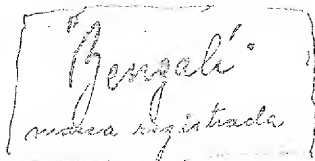 "Bengali"
marca registrada